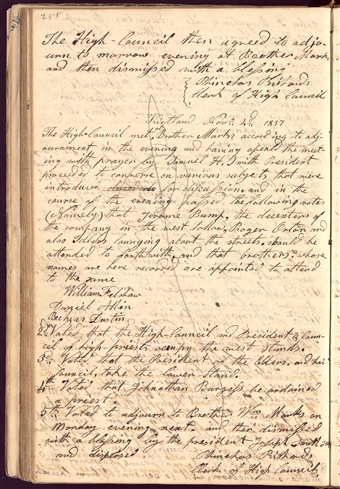 258
The High-Council then agreed to adjo-
urn to morrow evening at Brother Marks,
and then dismissed with a blessing
Phinehas Richards
Clerk of High Council
Kirtland 1837
The High-Council met, Brother Marks, according to adj-
ournment in the evening and having opend the meet-
ing with prayer by Samuel H. Smith President
proceeded to converse on various subjects that were
introduced for discussion, and in the
course of the evening passed the following votes
(Namely) that Jerome Bump, the
the company in the west
also Elders lounging about the streets, should be
attended to forthwith, and that brothers, whose
names are here recorded are appointed to attend
to the same
William Felshaw
Daniel
2d Voted that the High-Council and President & Coun-
cil of high priests occupy the west stands.
3rd Voted that the President of the Elders, and his
Council, take the lower stand.
4th Voted that Johnathan Burgess be ordained
a priest.
5th Voted to adjourn to Brother Wm Marks on
Monday evening next, and then dismissed
with a blessing by the president Joseph Smith
and
Phinehas Richards
Clerk of High Council